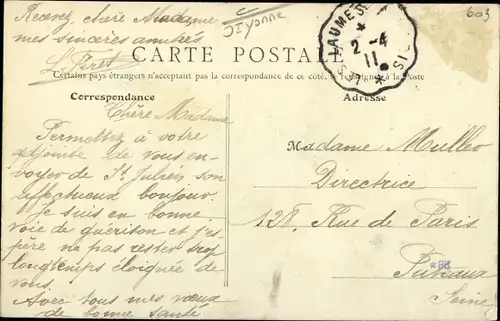 Recevez, chère Madame,
mes sincères amitiés
CARTE POSTALE
Certains pays étrangers n'acceptant pas la correspondance de ce côté, se renseigner à la Poste
2-4
11
603
Correspondance
Chère Madame
Permettez à votre
adjointe de vous en-
voyer de St Julien son
affectueux bonjour.
Je suis en bonne
voie de guérison et j'es-
père ne pas rester trop
longtemps éloignée de
vous.
Avec tous mes vœux
de bonne santé
Adresse
Madame Muller
Directrice
128, Rue de Paris
Puteaux
Seine